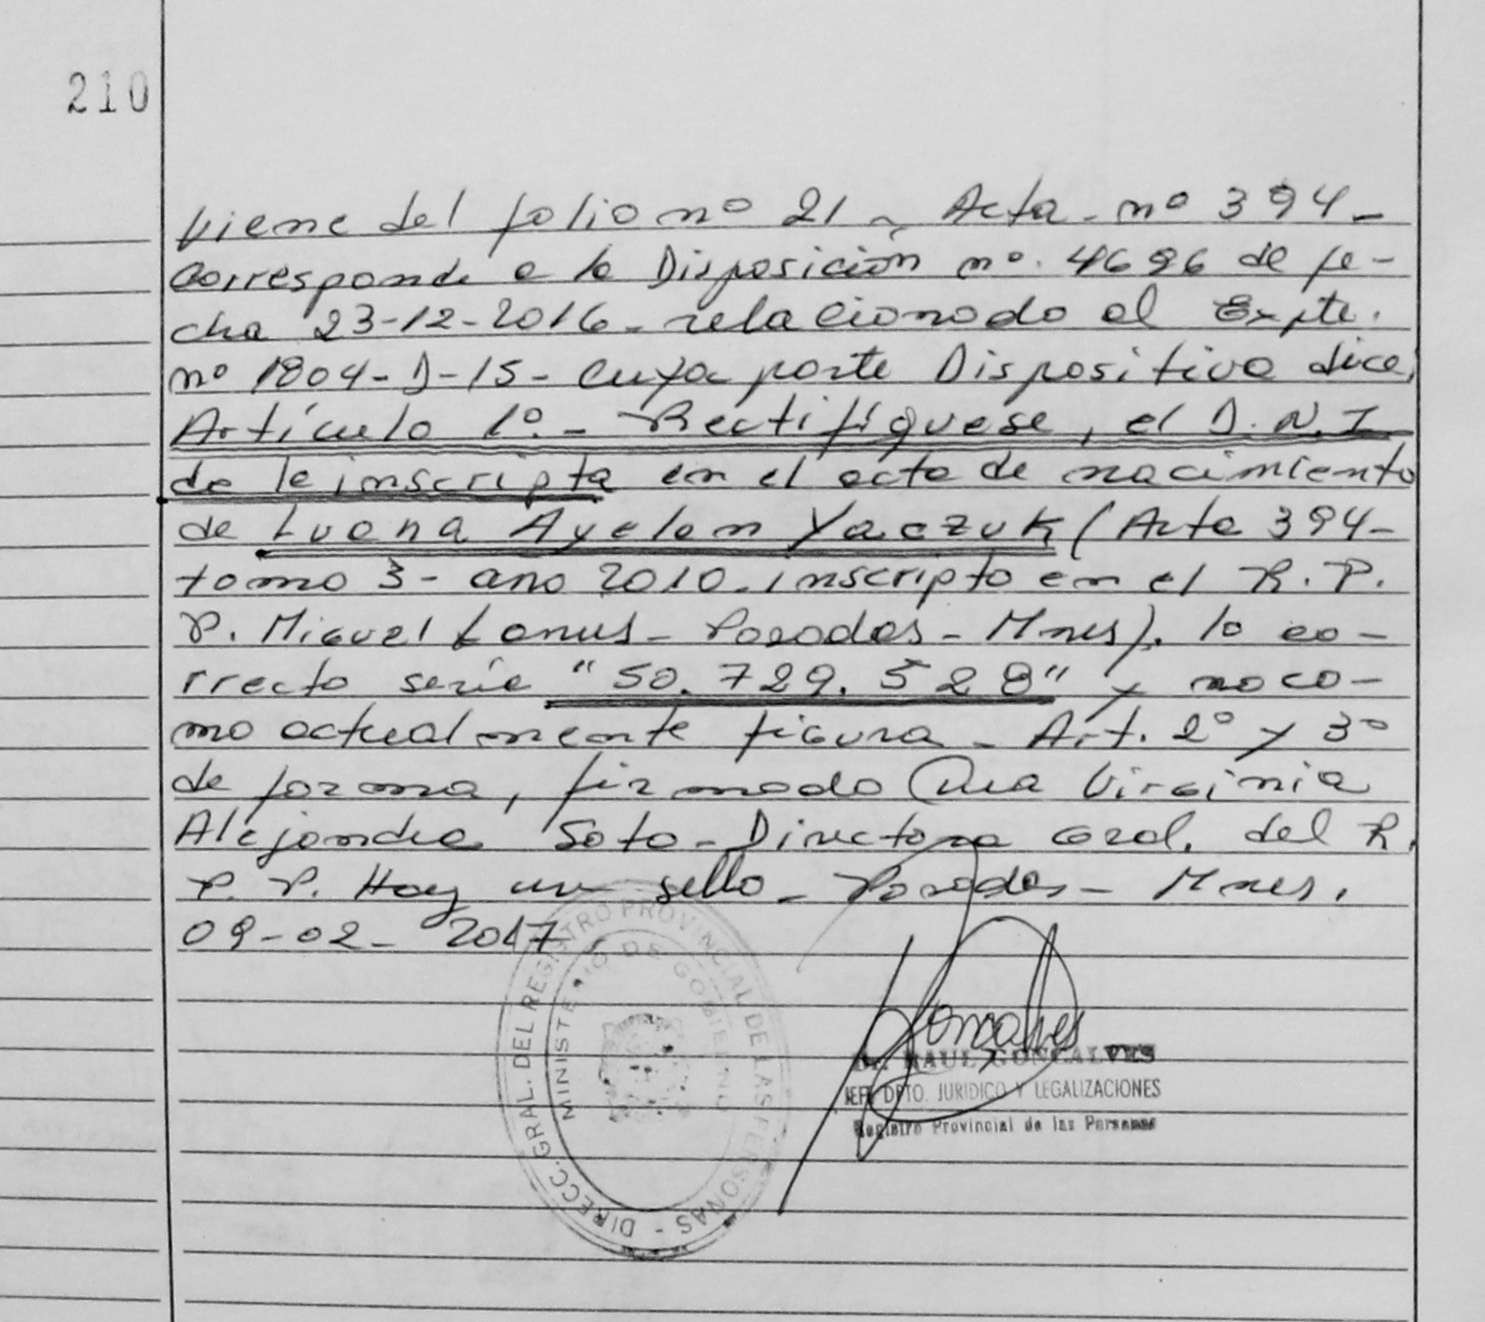 210
Viene del folio nº 21 - Acta - nº 394 -
Corresponde a la Disposición nº. 4696 de fe-
cha 23-12-2016 - relacionado al Expte.
nº 1804-D-15 - cuya parte Dispositiva dice,
Artículo 1º. - Rectifíquese, el D.N.I
de la inscripta en el acta de nacimiento
de Luana Ayelen Yaczuk (Acta 394-
tomo 3 - ano 2010 - inscripto en el R.P.
P. Miguel Lanus - Posadas - Mnes). lo co-
rrecto sería "50.729.528" y no co-
mo actualmente figura - Art. 2º y 3º
de forma, firmado Dra Virginia
Alejandra Soto - Directora Gral. del R.
P. P. Hay un sello - Posadas - Mnes.
09-02-2017.
DIRECC. GRAL. DEL REGISTRO PROVINCIAL DE LAS PERSONAS -
MINISTERIO DE GOBIERNO
Goncalves
Dr. RAUL GONCALVES
JEFE DPTO. JURIDICO Y LEGALIZACIONES
Registro Provincial de las Personas